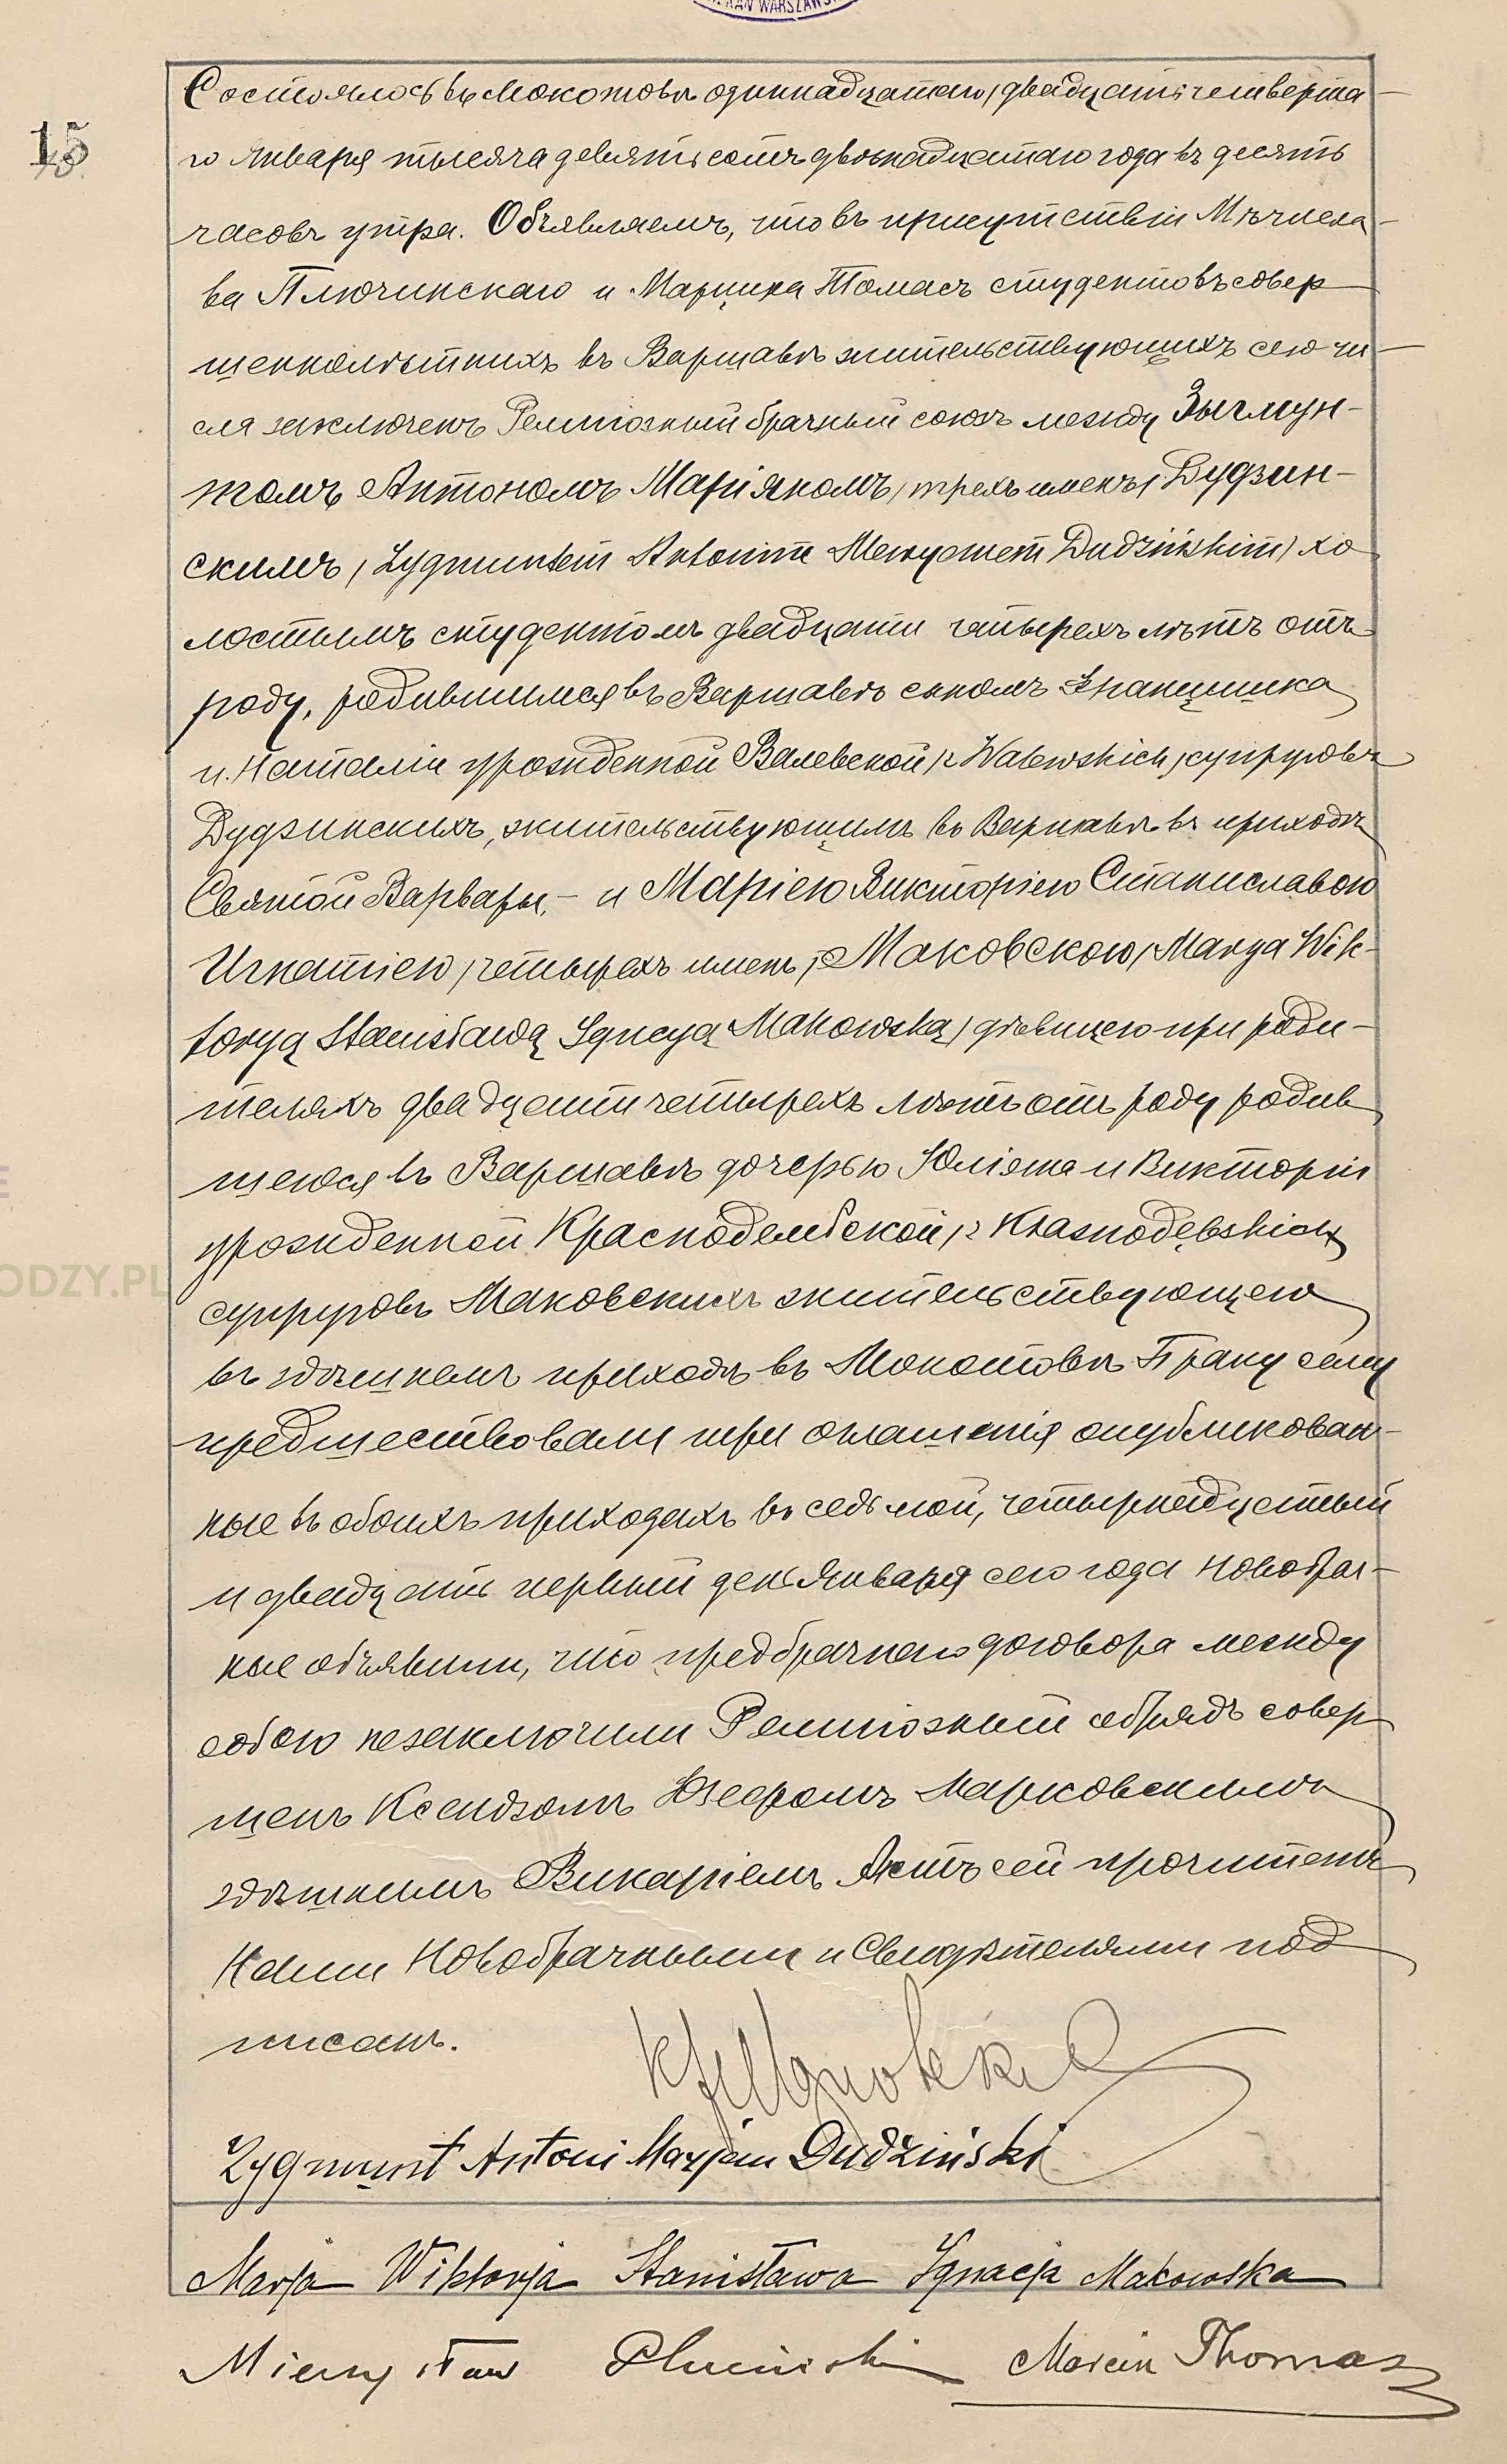 KAN WARSZAWS
15
15.
Состоялось въ Мокотовѣ одиннадцатаго / двадцать четверта-
го Января тысяча девятьсотъ двѣнадцатаго года въ десять
часовъ утра. Объявляемъ, что въ присутствіи Мѣчисла-
ва Плючинскаго и Марцина Томасъ студентовъ совер
шеннолѣтнихъ въ Варшавѣ жительствующихъ сего чи-
сла заключенъ Религіозный брачный союзъ между Зыгмун-
томъ Антономъ Маріяномъ / трехъ именъ / Дудзин-
скимъ / Zygmuntem Antonim Maryanem Dudzińskim / хо
лостымъ студентомъ двадцати четырехъ лѣтъ отъ
роду, родившимся въ Варшавѣ сыномъ Францишка
и Наталіи урожденной Валевской / z Walewskich / супруговъ
Дудзинскихъ, жительствующимъ въ Варшавѣ въ приходѣ
Святой Варвары, – и Маріею Викторіею Станиславою
Игнатіею / четырехъ именъ / Маковскою / Marya Wik-
toryą Stanisławą Ignacyą Makowską / дѣвицею при роди-
теляхъ двадцати четырехъ лѣтъ отъ роду родив
шеюся въ Варшавѣ дочерью Юліяна и Викторіи
урожденной Краснодембской / z Krasnodębskich
супруговъ Маковскихъ жительствующею
въ здѣшнемъ приходѣ въ Мокотовѣ Браку сему
предшествовали три оглашенія опубликован-
ные въ обоихъ приходахъ въ седьмой, четырнадцатый
и двадцать первый день Января сего года Новобрач-
ные объявили, что предбрачнаго договора между
собою незаключили Религіозный обрядъ совер
шенъ Ксендзомъ Юзефомъ Марковскимъ
здѣшнимъ Викаріемъ Актъ сей прочитанъ
Нами Новобрачными и Свидѣтелями под
писанъ.
Zygmunt Antoni Marjan Dudziński
Marja Wiktorja Stanisława Ignacja Makowska
Mieczysław Pluciński Marcin Thomas
ODZY.PL